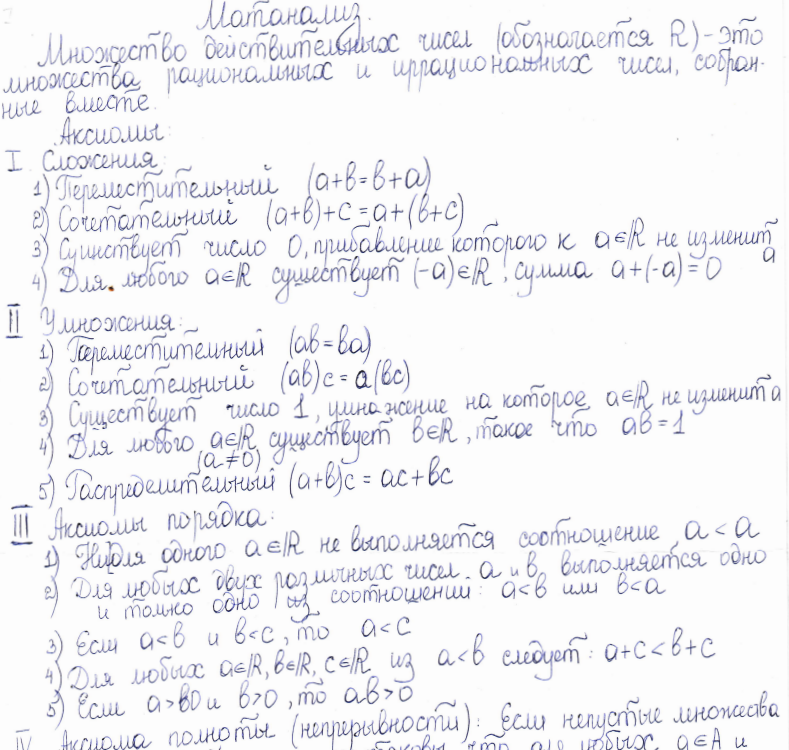 Матанализ.
Множество действительных чисел (обозначается R) - это
множества рациональных и иррациональных чисел, собран-
ные вместе.
Аксиомы:
I Сложения:
1) Переместительный (a+b=b+a)
2) Сочетательный (a+b)+c=a+(b+c)
3) Существует число 0, прибавление которого к a∈R не изменит a
4) Для любого a∈R существует (-a)∈R, сумма a+(-a)=0
II Умножения:
1) Переместительный (ab=ba)
2) Сочетательный (ab)c=a(bc)
3) Существует число 1, умножение на которое a∈R не изменит a
4) Для любого a∈R существует b∈R, такое что ab=1
(a≠0)
5) Распределительный (a+b)c=ac+bc
III Аксиомы порядка:
1) Ни для одного a∈R не выполняется соотношение a<a
2) Для любых двух различных чисел a и b выполняется одно
и только одно из соотношений: a<b или b<a
3) Если a<b и b<c, то a<c
4) Для любых a∈R, b∈R, c∈R из a<b следует: a+c<b+c
5) Если a>0 и b>0, то ab>0
IV Аксиома полноты (непрерывности): Если непустые множества
что для любых a∈A и